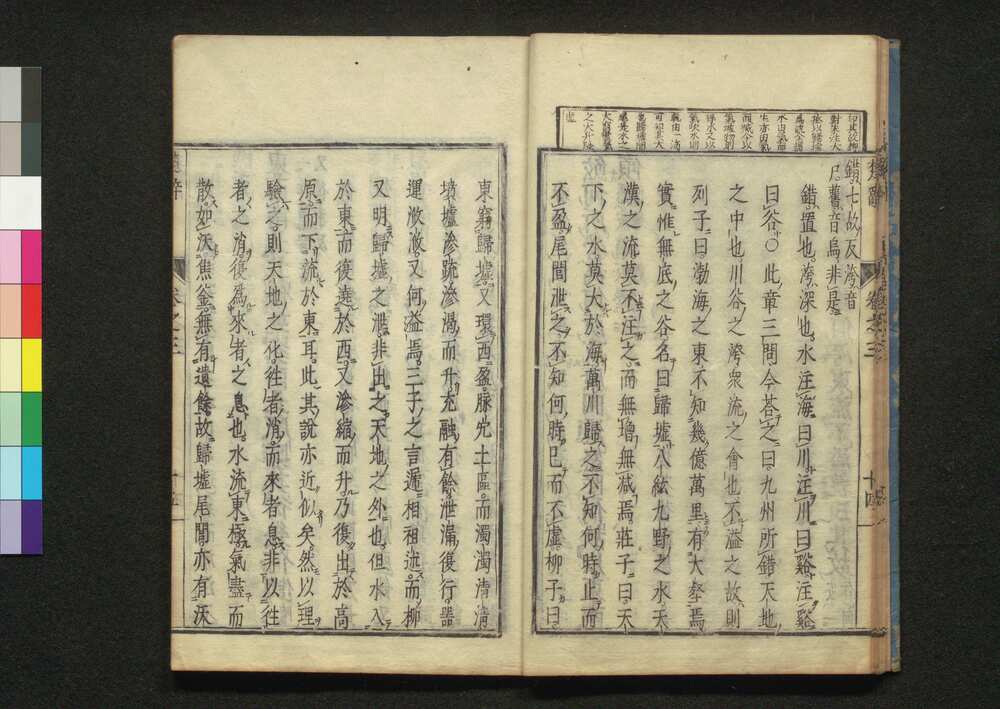 楚辭 卷之三 十四
錯七故反洿音
戶舊音烏非是
錯置也洿深也水注海曰川注川曰谿注谿
曰谷○此章三問今荅之曰九州所錯天地
之中也川谷之洿衆流之會也不溢之故則
列子曰渤海之東不知幾億萬里有大壑焉
實惟無底之谷名曰歸墟八紘九野之水天
漢之流莫不注之而無增無減焉莊子曰天
下之水莫大於海萬川歸之不知何時止而
不盈尾閭泄之不知何時已而不虛柳子曰
東窮歸墟又環西盈脉穴土區而濁濁清清
墳壚滲疏滲渴而升充融有餘泄漏復行器
運浟浟又何溢焉三子之言遞相祖述而柳
又明歸墟之泄非出之天地之外也但水入
於東而復遶於西又滲縮而升乃復出於高
原而下流於東耳此其說亦近似矣然以理
驗之則天地之化徃者消而來者息非以徃
者之消復爲來者之息也水流東極氣盡而
散如沃焦釜無有遺餘故歸墟尾閭亦有沃
楚辭 卷之三 十五